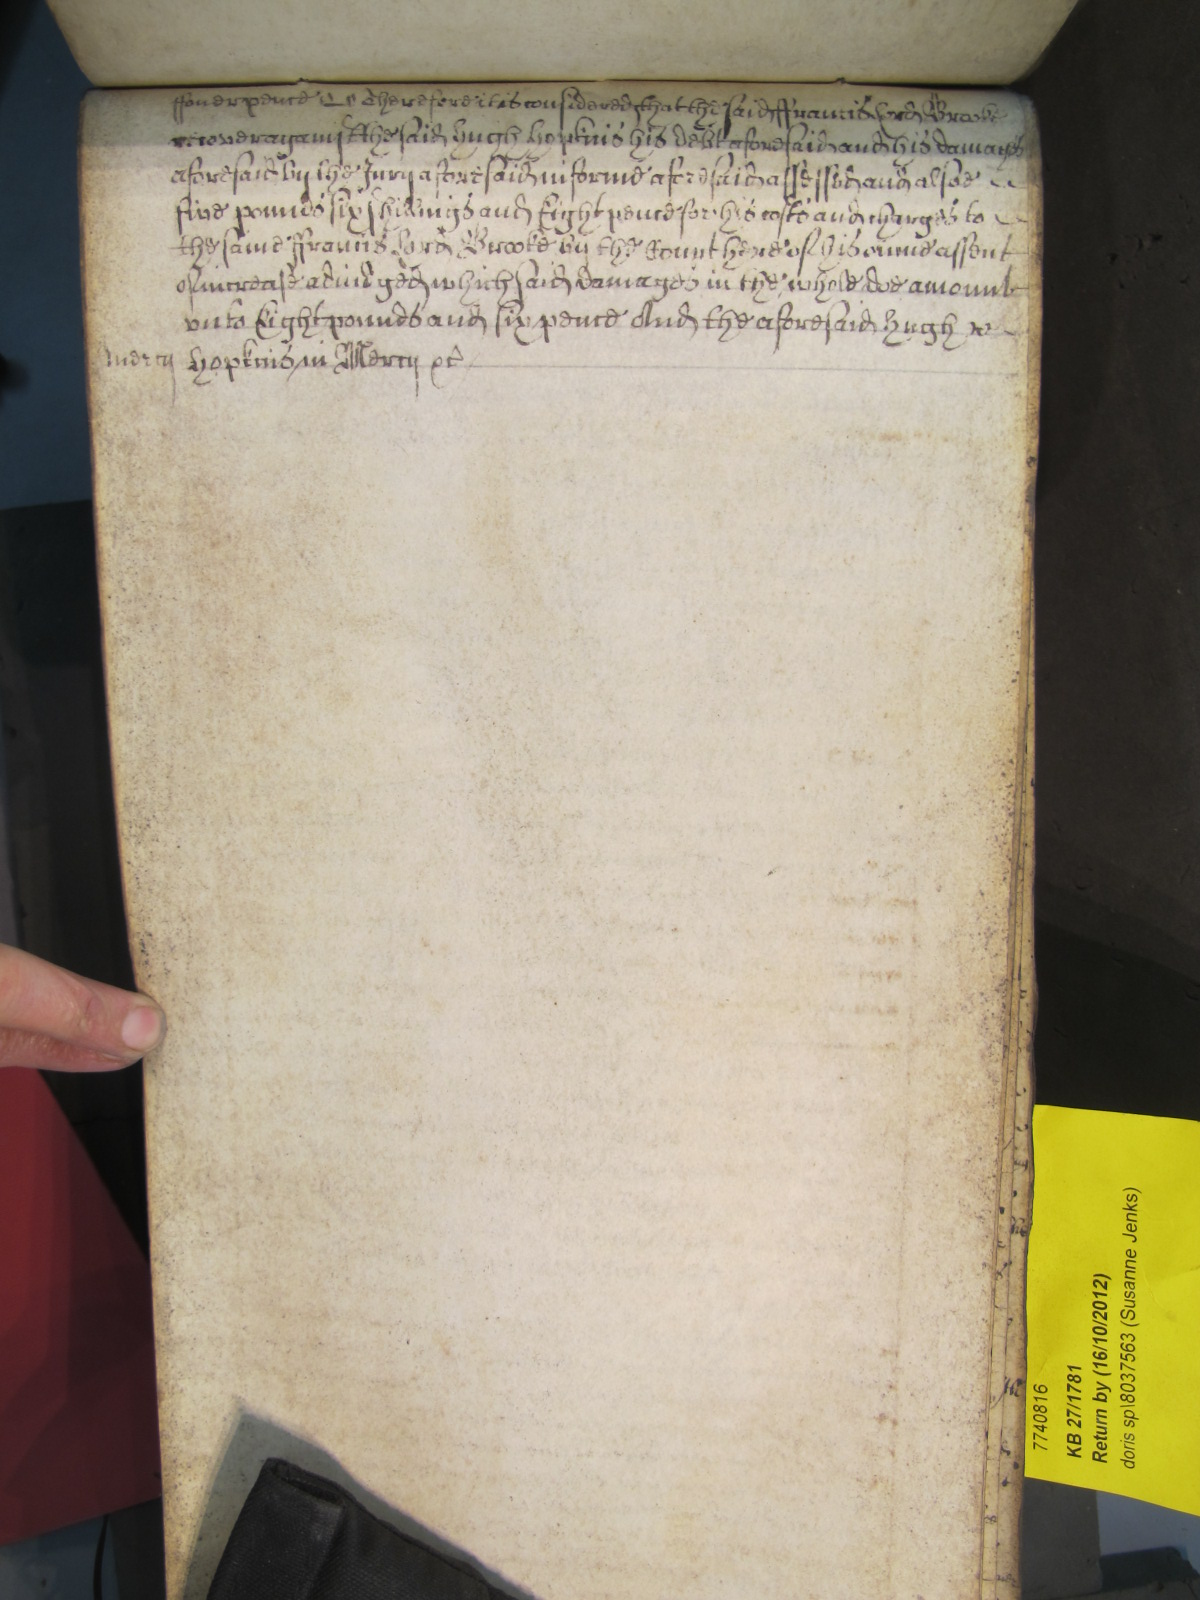 ffouerpence Therefore it is considered that the said ffrancis Lord Brooke
recover against the said Hugh Hopkins his debt aforesaid and his damages
aforesaid by the Jury aforesaid in forme aforesaid assessed and alsoe
five pounds six shillings and Eight pence for his costs and charges to
the same ffrancis Lord Brooke by the Court here of his owne assent
of increase adiudged which said damages in the whole doe amount
vnto Eight pounds and six pence And the aforesaid Hugh
Mercy Hopkins in Mercy &c
7740816
KB 27/1781
Return by (16/10/2012)
doris sp\8037563 (Susanne Jenks)